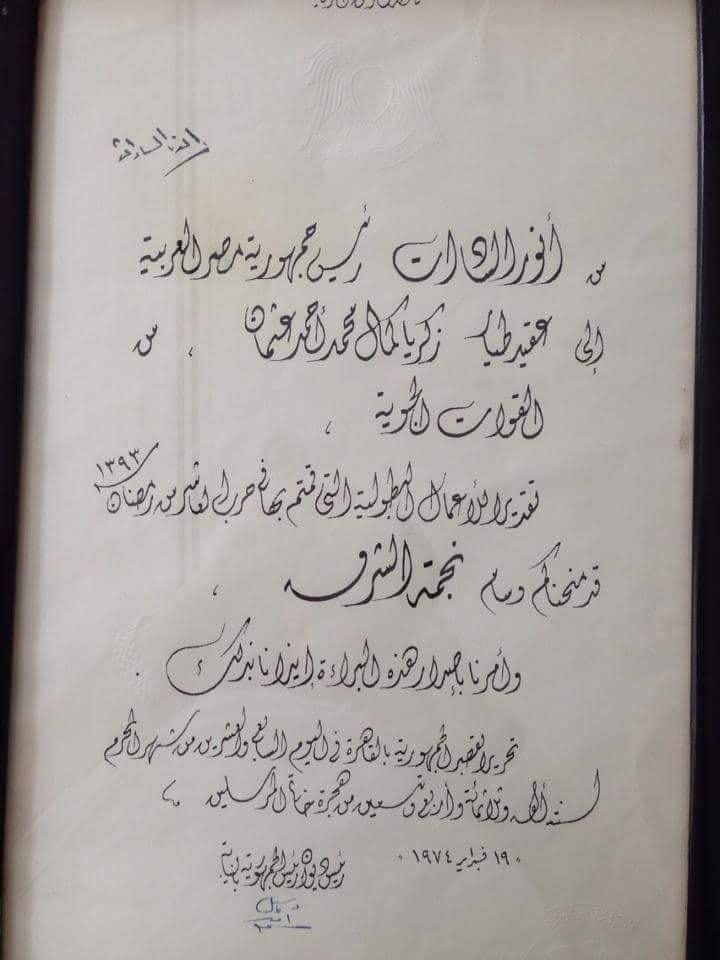 من أنور السادات رئيس جمهورية مصر العربية
إلى عقيد طيار زكريا كمال محمد أحمد عثمان ، من
القوات الجوية ،
تقديرا للأعمال البطولية التى قمتم بها فى حرب العاشر من رمضان ١٣٩٣
قد منحناكم وسام نجمة الشرف ،
وأمرنا بإصدار هذه البراءة إيذانا بذلك .
تحريرا بقصر الجمهورية بالقاهرة فى اليوم السابع والعشرين من شهر المحرم
لسنة ألف وثلاثمائة وأربع وتسعين من هجرة خاتم المرسلين
١٩ فبراير ١٩٧٤
رئيس ديوان رئيس الجمهورية بالنيابة